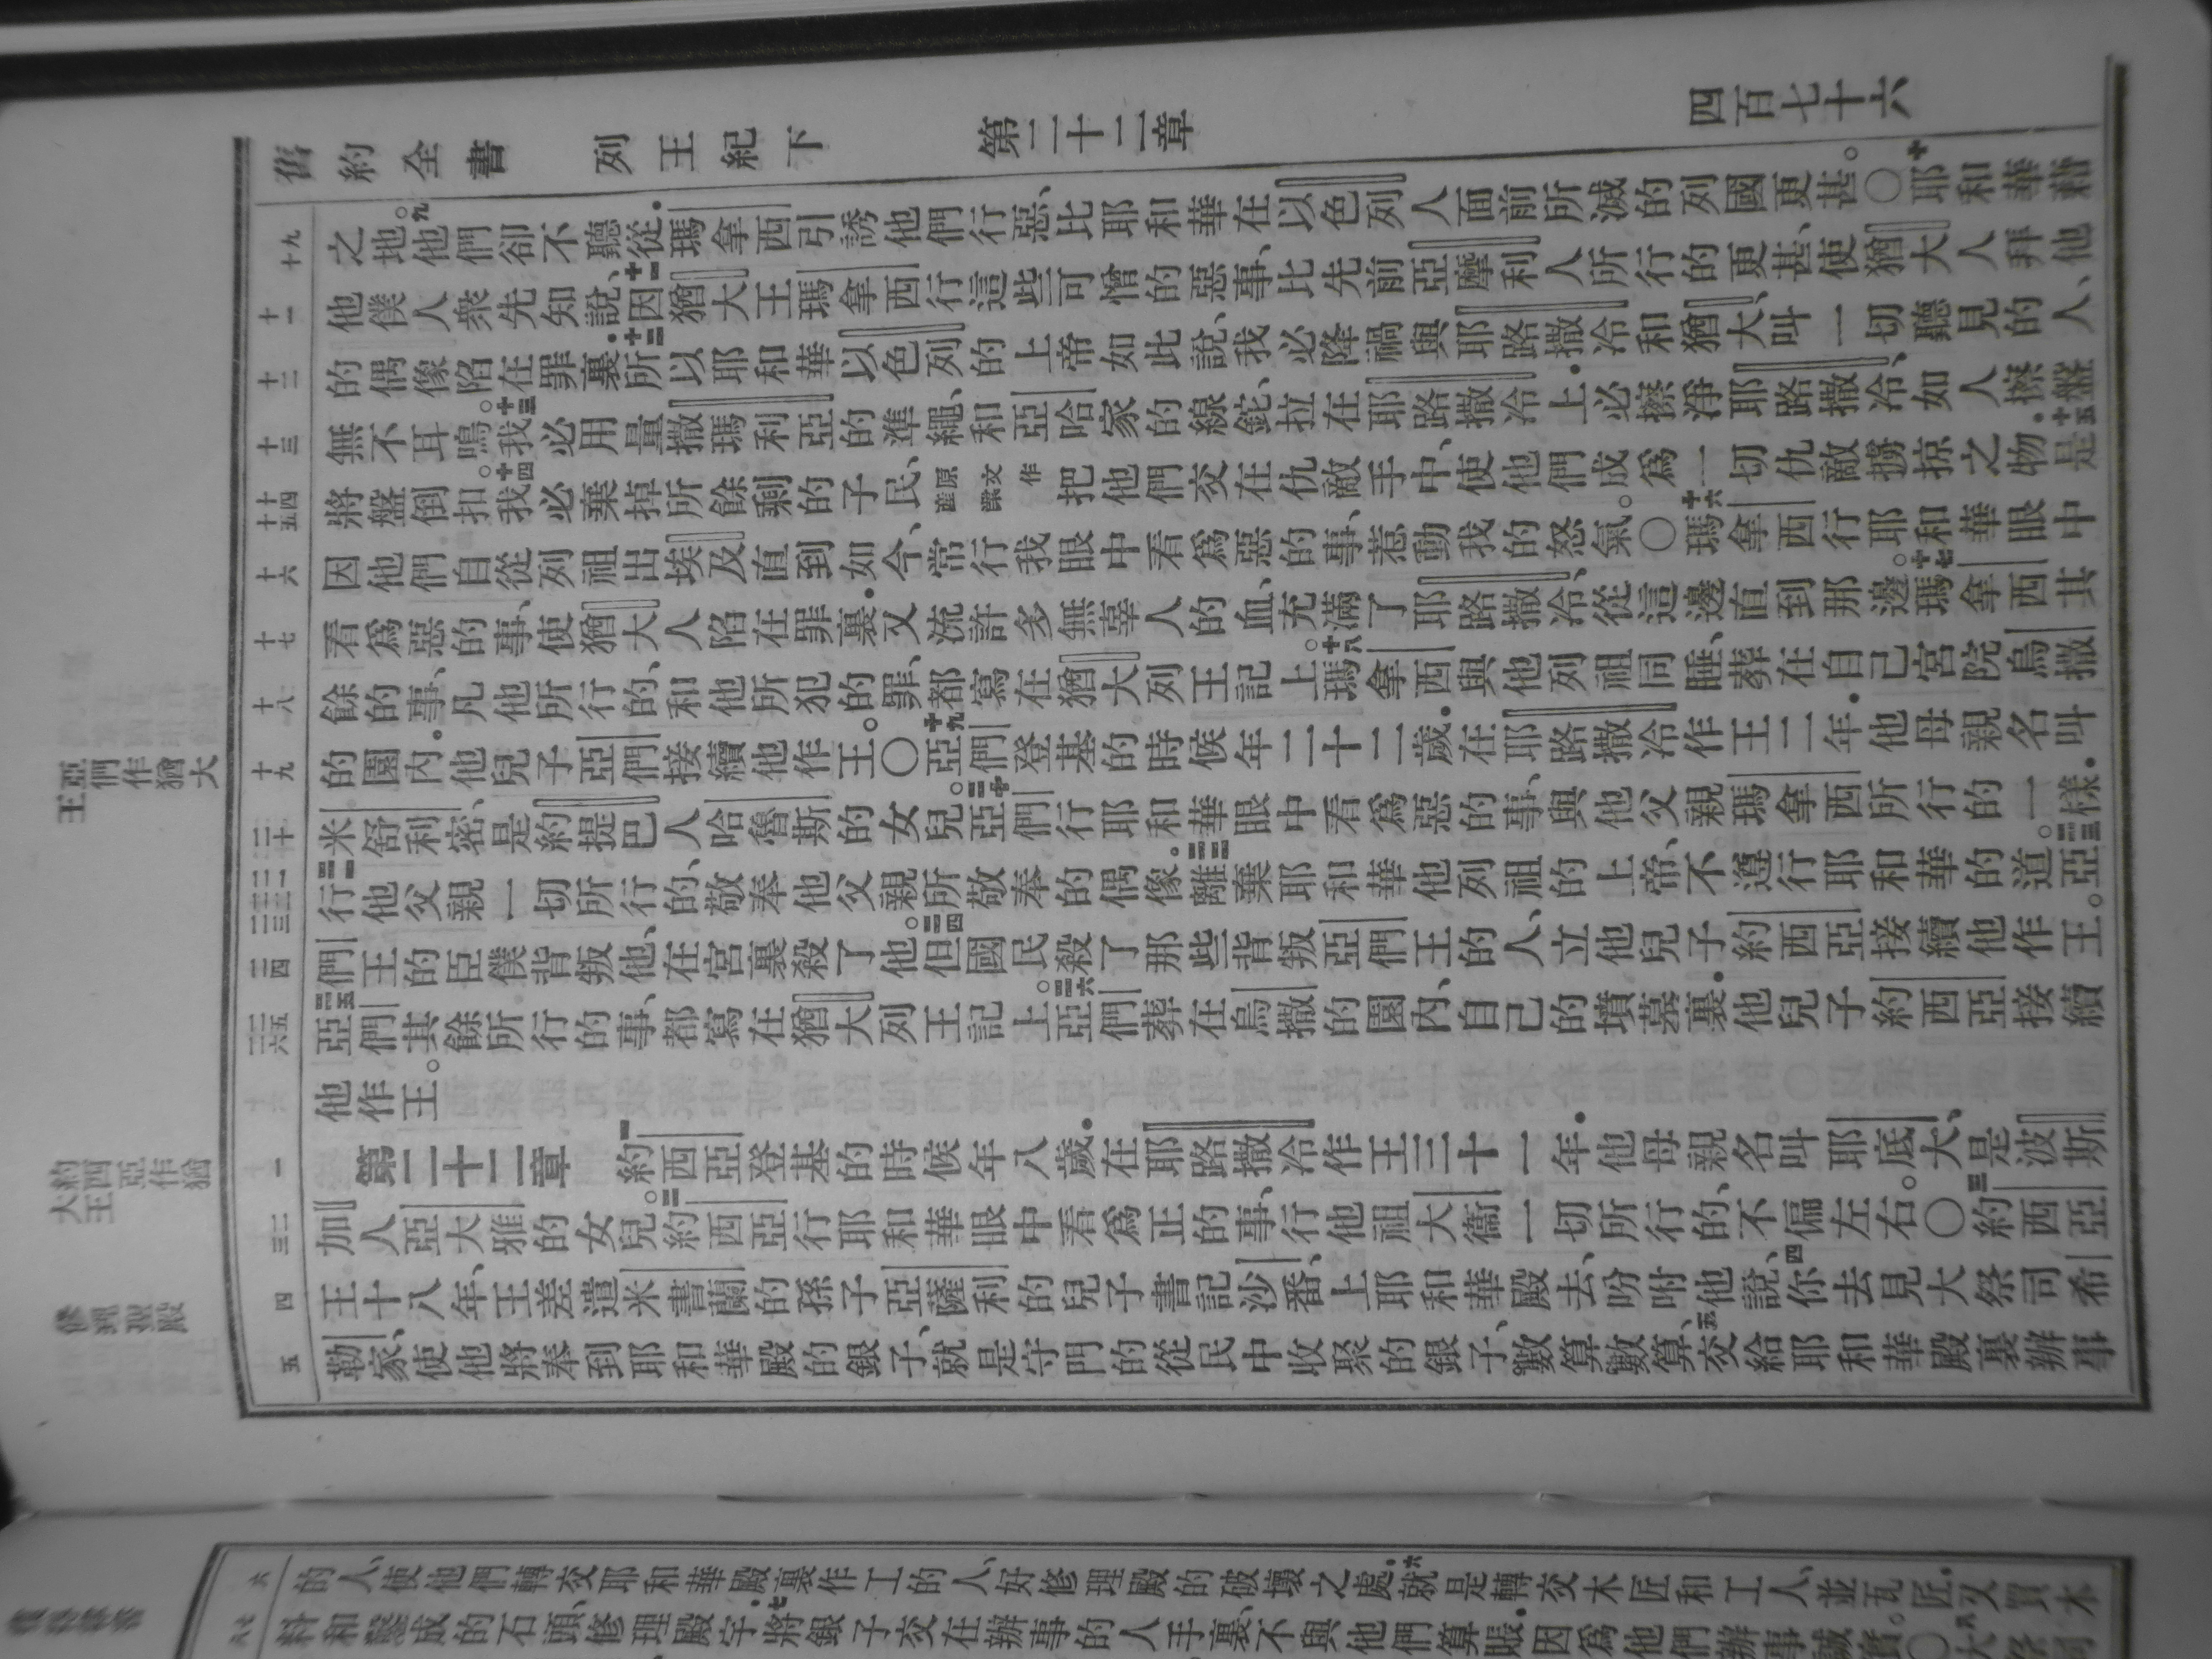 舊約全書 列王紀下 第二十二章 四百七十六
九十 之地。九他們卻不聽從．瑪拿西引誘他們行惡、比耶和華在以色列人面前所滅的列國更甚。〇十耶和華藉
十一 他僕人衆先知說、十一因猶大王瑪拿西行這些可憎的惡事、比先前亞摩利人所行的更甚、使猶大人拜他
十二 的偶像、陷在罪裏．十二所以耶和華以色列的上帝如此說、我必降禍與耶路撒冷和猶大、叫一切聽見的人、
十三 無不耳鳴。十三我必用量撒瑪利亞的準繩、和亞哈家的線鉈、拉在耶路撒冷上．必擦淨耶路撒冷、如人擦盤、
十四 十五 將盤倒扣。十四我必棄掉所餘剩的子民、原文作產業 把他們交在仇敵手中、使他們成爲一切仇敵擄掠之物．十五是
十六 因他們自從列祖出埃及直到如今、常行我眼中看爲惡的事、惹動我的怒氣。〇十六瑪拿西行耶和華眼中
十七 看爲惡的事、使猶大人陷在罪裏．又流許多無辜人的血、充滿了耶路撒冷、從這邊直到那邊。十七瑪拿西其
十八 餘的事、凡他所行的、和他所犯的罪、都寫在猶大列王記上。十八瑪拿西與他列祖同睡、葬在自己宮院烏撒
十九 的園內．他兒子亞們接續他作王。〇十九亞們登基的時候年二十二歲．在耶路撒冷作王二年．他母親名叫
二十 米舒利密、是約提巴人哈魯斯的女兒。二十亞們行耶和華眼中看爲惡的事、與他父親瑪拿西所行的一樣．
二一 二二 二三 二一行他父親一切所行的、敬奉他父親所敬奉的偶像．二二離棄耶和華他列祖的上帝、不遵行耶和華的道。二三亞
二四 們王的臣僕背叛他、在宮裏殺了他。二四但國民殺了那些背叛亞們王的人、立他兒子約西亞接續他作王。
二五 二六 二五亞們其餘所行的事、都寫在猶大列王記上。二六亞們葬在烏撒的園內、自己的墳墓裏．他兒子約西亞接續
他作王。
一 第二十二章 一約西亞登基的時候年八歲．在耶路撒冷作王三十一年．他母親名叫耶底大、是波斯
二 三 加人亞大雅的女兒。二約西亞行耶和華眼中看爲正的事、行他祖大衞一切所行的、不偏左右。〇三約西亞
四 王十八年、王差遣米書蘭的孫子亞薩利的兒子書記沙番、上耶和華殿去、吩咐他說、四你去見大祭司希
五 勒家、使他將奉到耶和華殿的銀子、就是守門的從民中收聚的銀子、數算數算、五交給耶和華殿裏辦事
王亞們作猶大
大約王西亞作猶
修理聖殿
六 的人、使他們轉交耶和華殿裏作工的人、好修理殿的破壞之處．六就是轉交木匠和工人、並瓦匠．又買木
料和鑿成的石頭、修理殿宇．七將銀子交在辦事的人手裏、不與他們算賬．因爲他們辦事誠實。〇八大